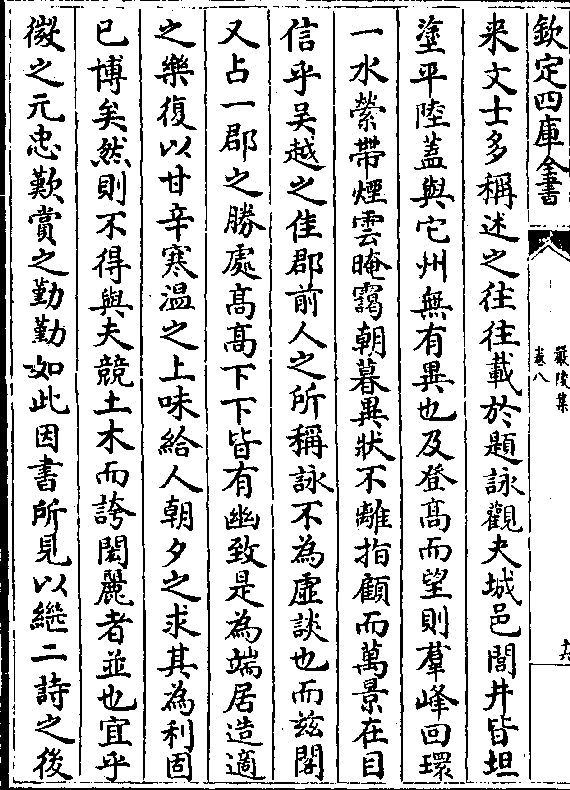 欽定四庫全書
嚴陵集
卷八
来文士多稱述之往往載於題詠觀夫城邑閭井皆坦
塗平陸蓋與它州無有異也及登髙而望則羣峰回環
一水縈帶煙雲晻靄朝暮異狀不離指顧而萬景在目
信乎吳越之佳郡前人之所稱詠不為虚談也而兹閣
又占一郡之勝處髙髙下下皆有幽致是為端居造適
之樂復以甘辛寒温之上味給人朝夕之求其為利固
已博矣然則不得與夫競土木而誇閎麗者並也宜乎
微之元忠歎賞之勤勤如此因書所見以繼二詩之後